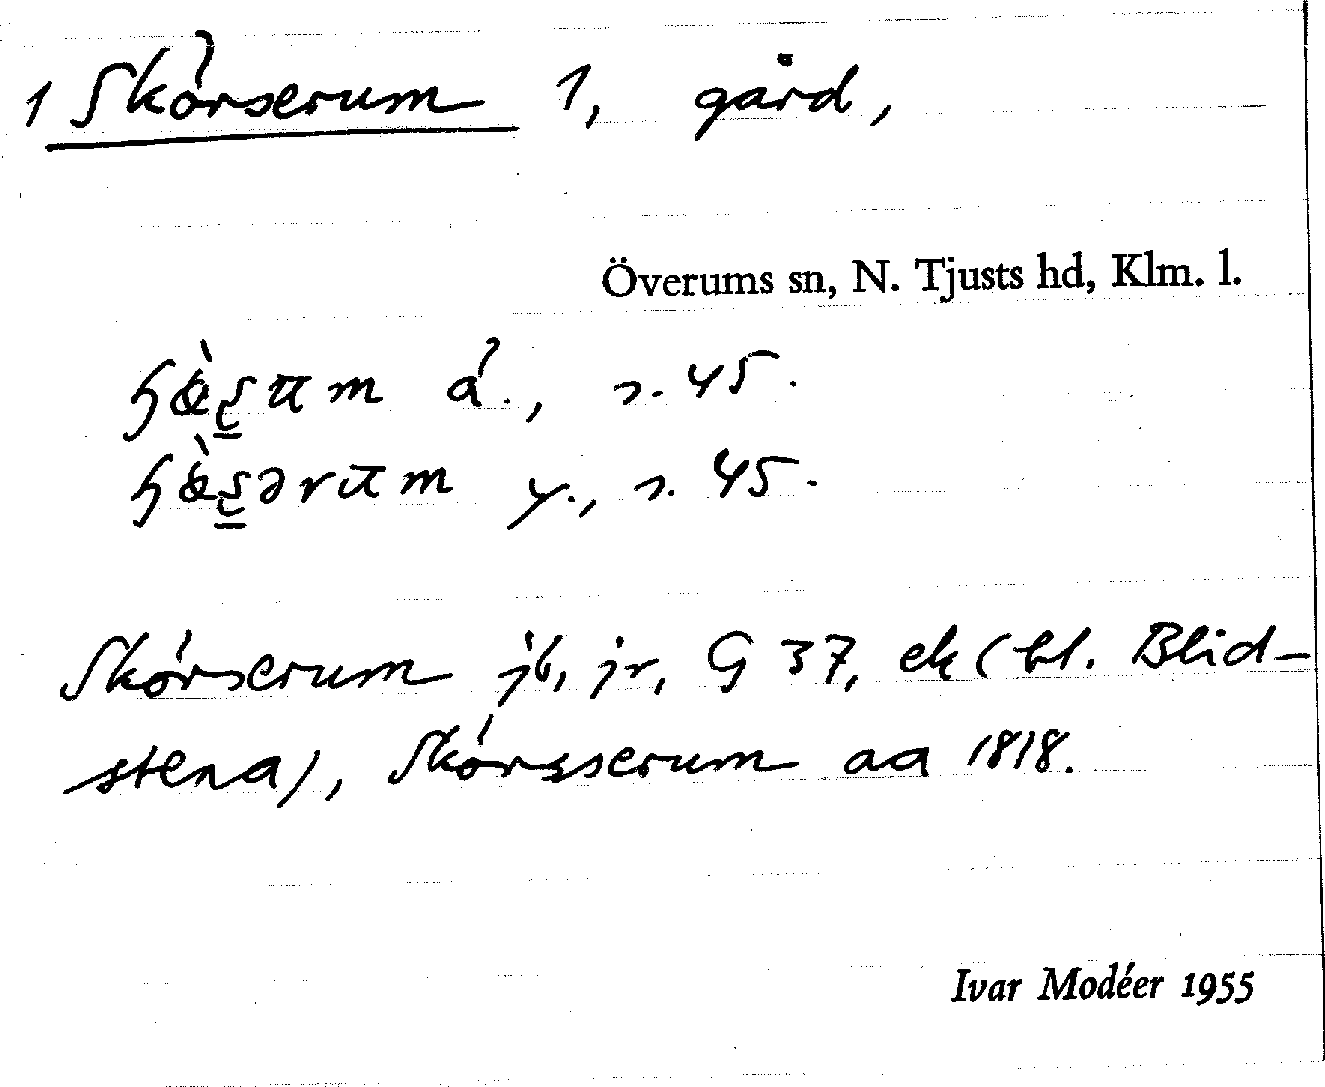 1 Skörserum 1, gård,
Överums sn, N. Tjusts hd, Klm. l.
ä., s. 45.
y., s. 45.
Skörserum jb, jr, G 37, ek (bl. Blid-
stena), Skörsserum aa 1818.
Ivar Modéer 1955